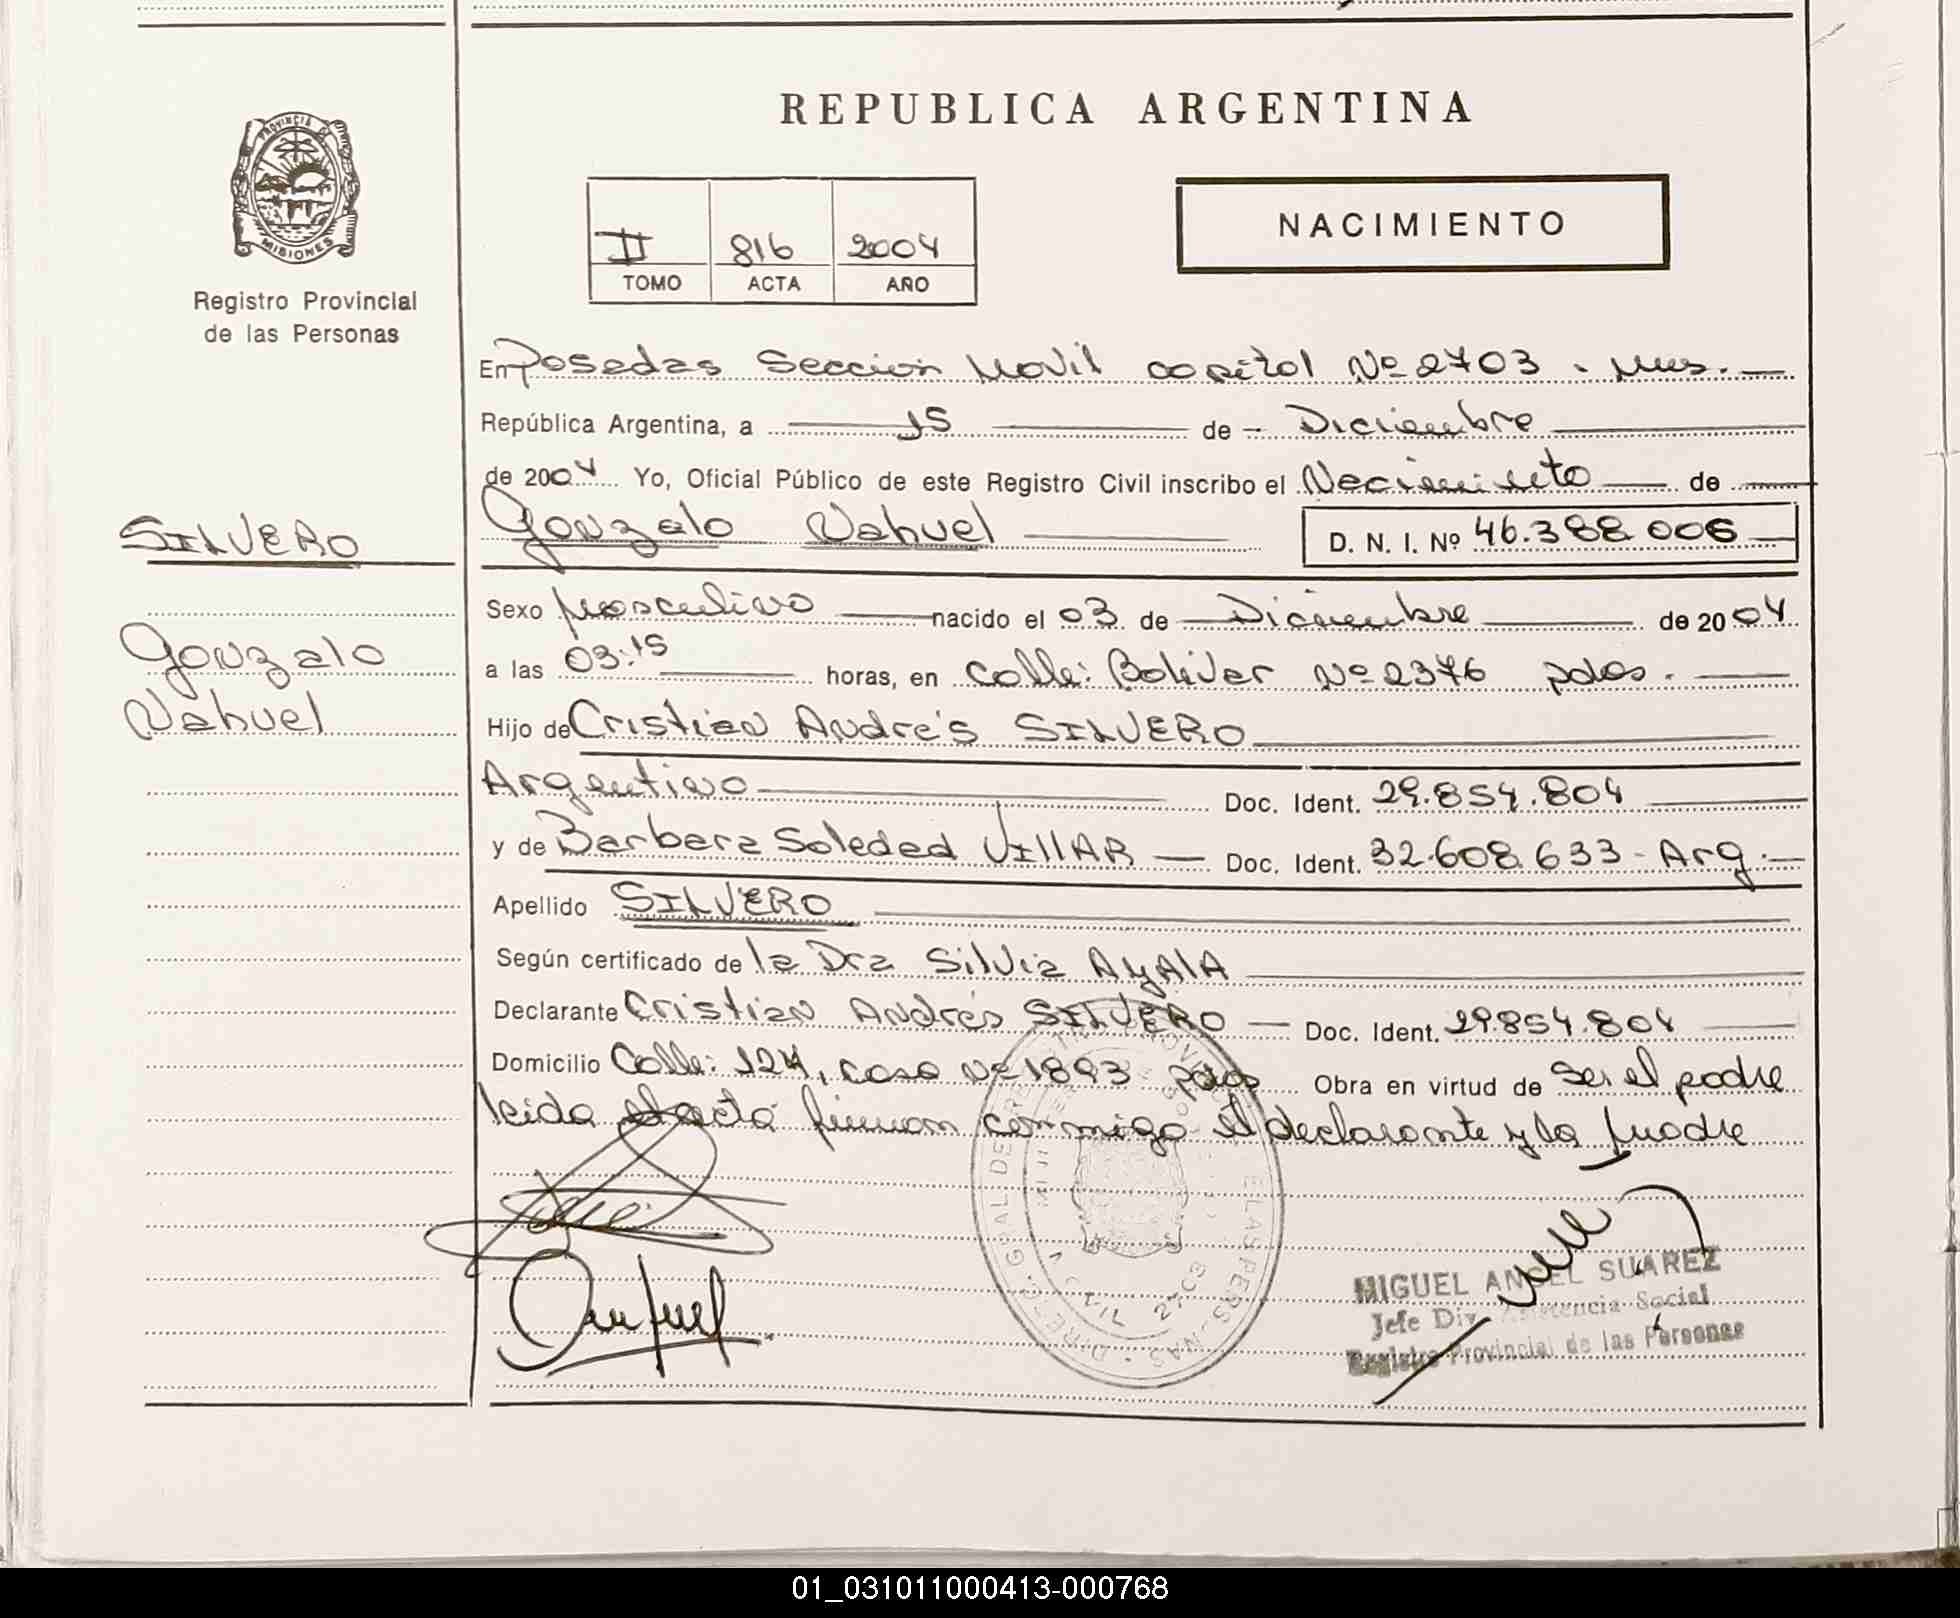 REPUBLICA ARGENTINA
PROVINCIA DE
MISIONES
Registro Provincial
de las Personas
II 816 2004
TOMO ACTA AÑO
NACIMIENTO
En Posadas Sección Movil capital Nº 2703 . Mnes. —
República Argentina, a — 15 — de — Diciembre —
de 2004 Yo, Oficial Público de este Registro Civil inscribo el Nacimiento — de —
Gonzalo Nahuel — D. N. I. Nº 46.388.006 —
SILVERO
Gonzalo
Nahuel
Sexo Masculino — nacido el 03 de — Diciembre — de 2004
a las 03:15 — horas, en Calle: Bolivar Nº 2376 pdas. —
Hijo de Cristian Andrés SILVERO —
Argentino — Doc. Ident. 29.854.804 —
y de Barbara Soledad VIllAR — Doc. Ident. 32.608.633 - Arg. —
Apellido SILVERO —
Según certificado de la Dra Silvia AyAlA —
Declarante Cristian Andrés SILVERO — Doc. Ident. 29.854.804 —
Domicilio Calle: 124, casa Nº 1893 pdas Obra en virtud de Ser el padre
leida el acta firman conmigo el declarante y la madre
MIGUEL ANGEL SUAREZ
Jefe Div. Asistencia Social
Registro Provincial de las Personas
01_031011000413-000768